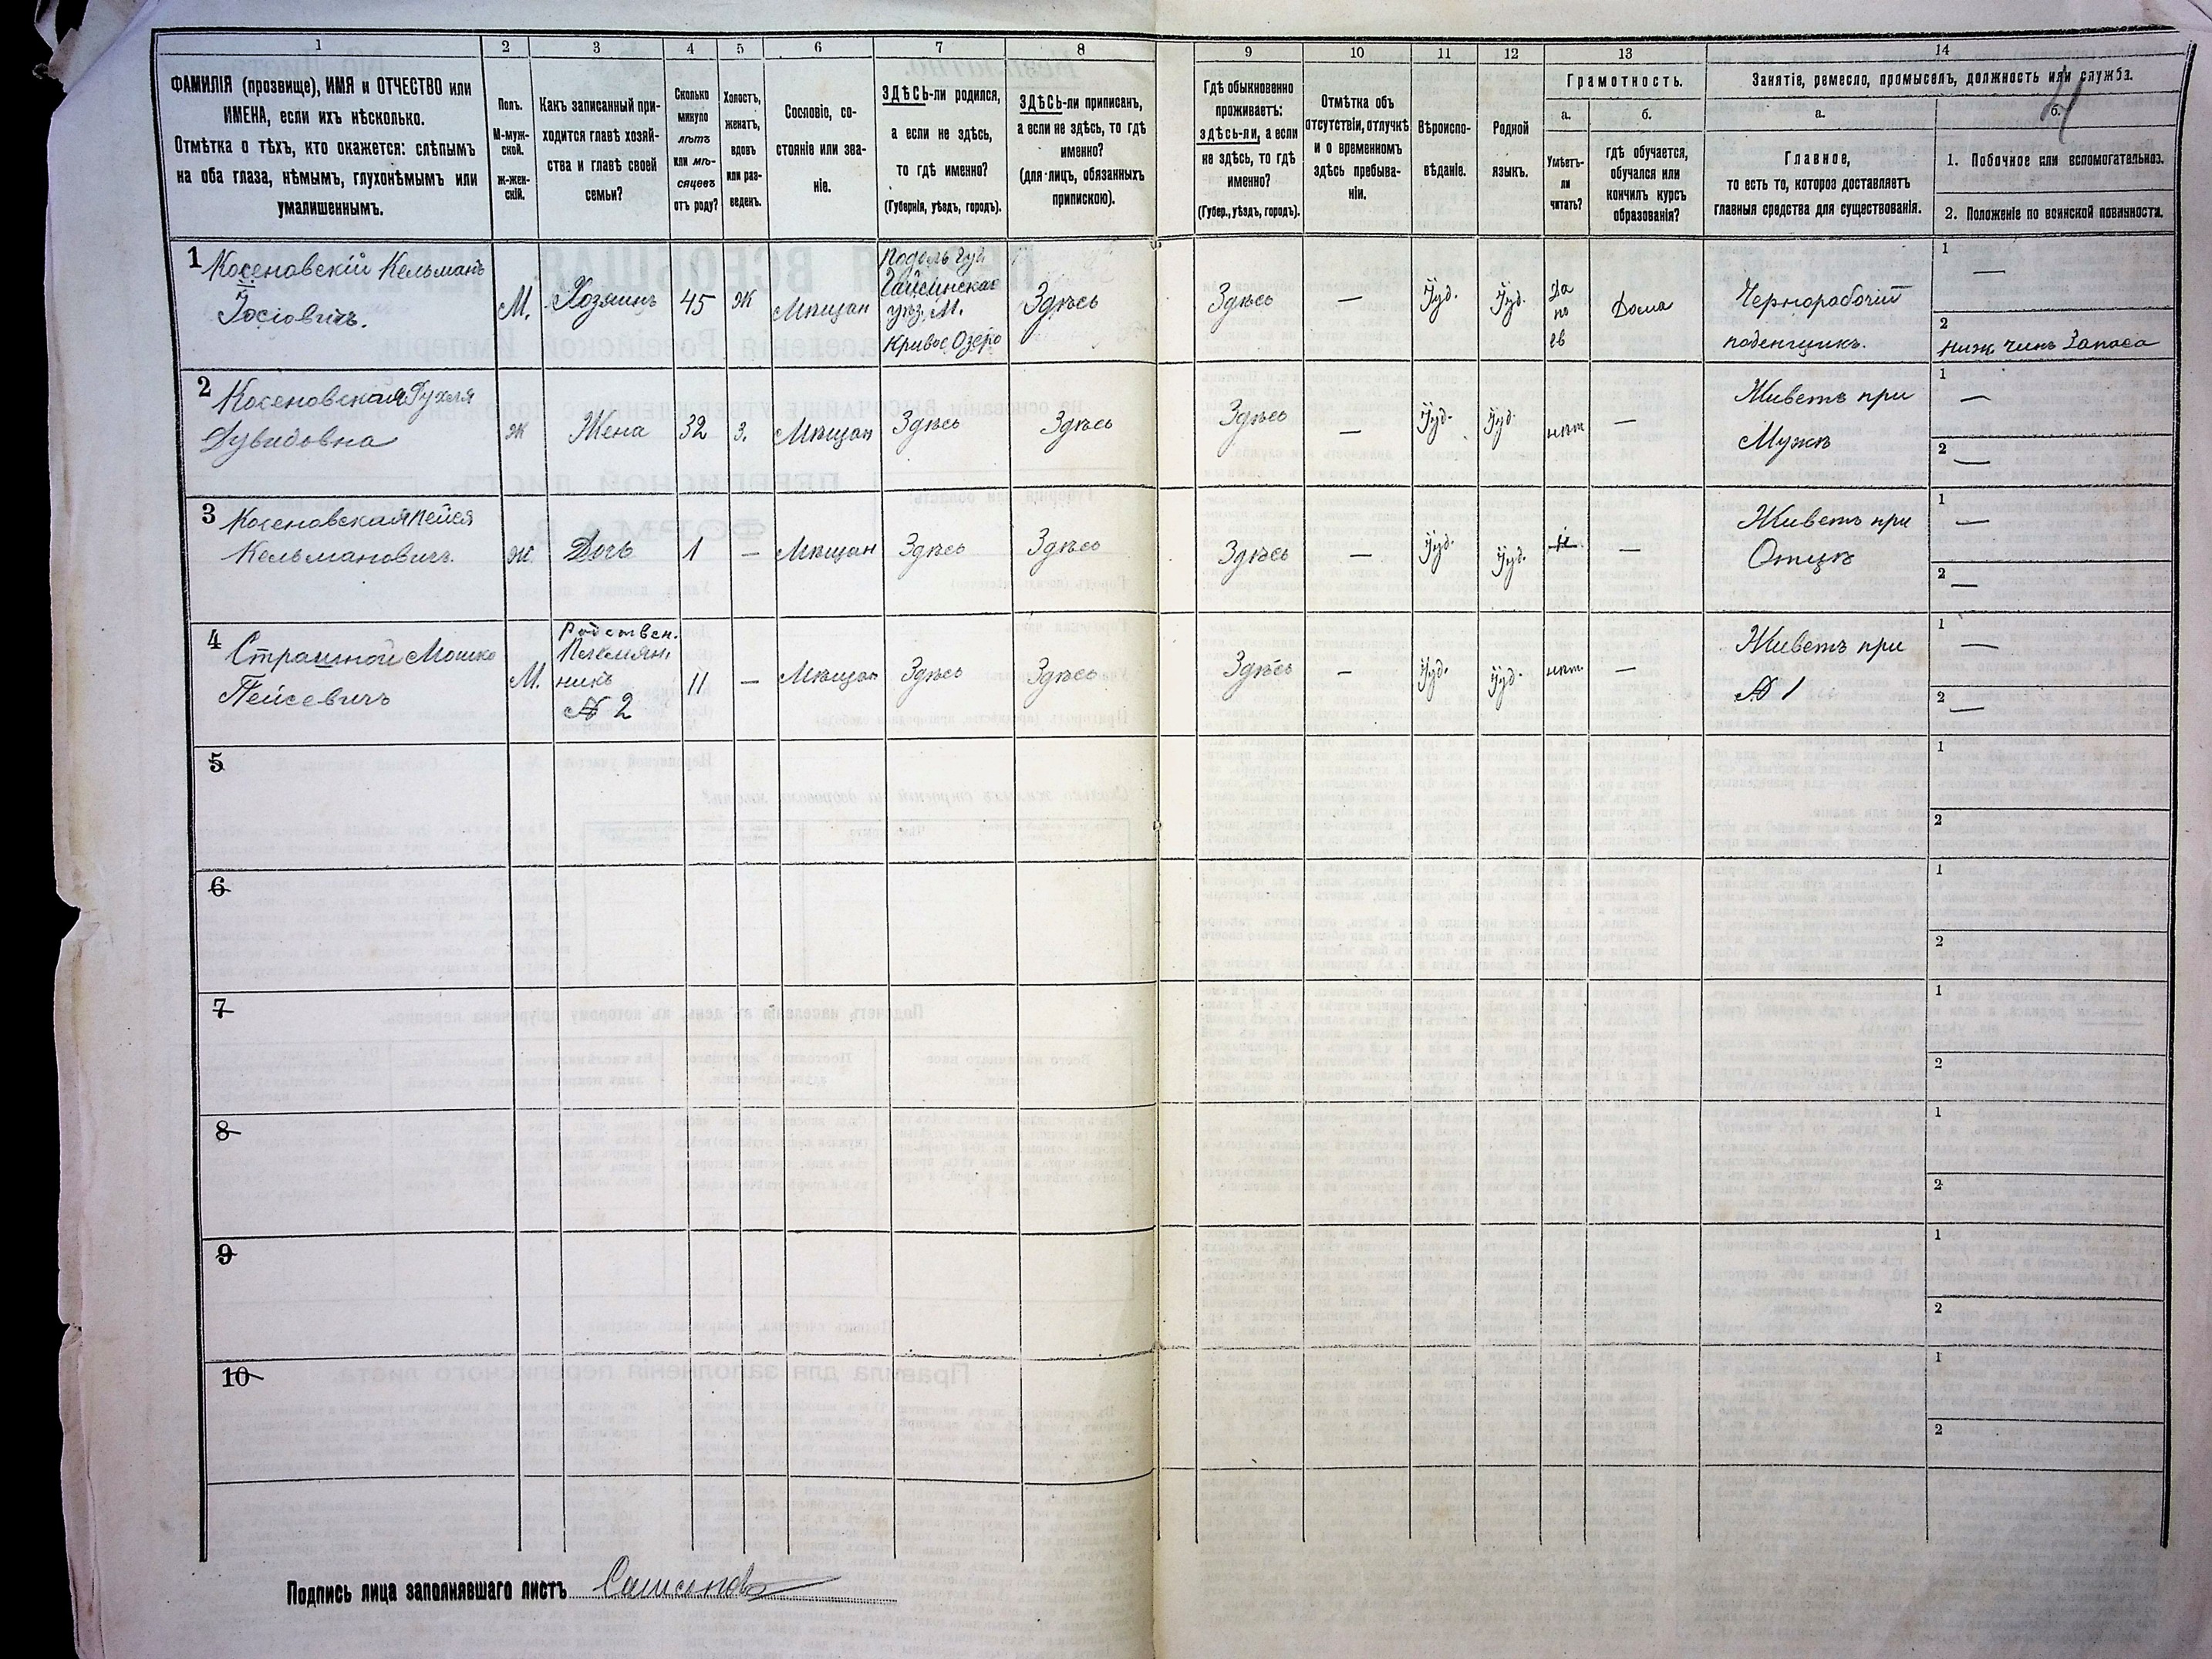 1 2 3 4 5 6 7 8 9 10 11 12 13 14
ФАМИЛІЯ (прозвище), ИМЯ и ОТЧЕСТВО или
ИМЕНА, если ихъ нѣсколько.
Отмѣтка о тѣхъ, кто окажется: слѣпымъ
на оба глаза, нѣмымъ, глухонѣмымъ или
умалишеннымъ.
Полъ.
М-муж-
ской.
ж-жен-
скій.
Какъ записанный при-
ходится главѣ хозяй-
ства и главѣ своей
семьи?
Сколько
минуло
лѣтъ
или мѣ-
сяцевъ
отъ роду?
Холостъ,
женатъ,
вдовъ
или раз-
веденъ.
Сословіе, со-
стояніе или зва-
ніе.
ЗДѢСЬ-ли родился,
а если не здѣсь,
то гдѣ именно?
(Губернія, уѣздъ, городъ).
ЗДѢСЬ-ли приписанъ,
а если не здѣсь, то гдѣ
именно?
(для лицъ, обязанныхъ
припискою).
Гдѣ обыкновенно
проживаетъ:
здѣсь-ли, а если
не здѣсь, то гдѣ
именно?
(Губер., уѣздъ, городъ).
Отмѣтка объ
отсутствіи, отлучкѣ
и о временномъ
здѣсь пребыва-
ніи.
Вѣроиспо-
вѣданіе.
Родной
языкъ.
Грамотность.
а.
Умѣетъ-
ли
читать?
б.
гдѣ обучается,
обучался или
кончилъ курсъ
образованія?
Занятіе, ремесло, промыселъ, должность или служба.
а.
Главное,
то есть то, которое доставляетъ
главныя средства для существованія.
б.
1. Побочное или вспомогательное.
2. Положеніе по воинской повинности.
1 Косеновскій Кельманъ
Іосіовичъ.
М.
Хозяинъ
45
Ж
Мѣщан
Подоль Губ
Гайсинскаго
уѣз. М.
Кривое Озеро
Здѣсь
Здѣсь
—
Іуд.
Іуд.
Да
по
ев
Дома
Чернорабочій
поденщикъ.
1
—
2
Ниж. Чинъ Запаса
2 Косеновская Рухля
Дувидовна
Ж
Жена
32
З.
Мѣщан
Здѣсь
Здѣсь
Здѣсь
—
Іуд.
Іуд.
нѣт
—
Живетъ при
Мужѣ
1
—
2
—
3 Косеновская Пейся
Кельмановичъ.
Ж.
Дочь
1
—
Мѣщан
Здѣсь
Здѣсь
Здѣсь
—
Іуд.
Іуд.
—
Живетъ при
Отцѣ
1
—
2
—
4 Страшной Мошко
Пейсевичъ
М.
Родствен.
Племян
никъ
№ 2
11
—
Мѣщан
Здѣсь
Здѣсь
Здѣсь
—
Іуд.
Іуд.
нѣт
—
Живетъ при
№ 1
1
—
2
—
5
1
2
6
1
2
7
1
2
8
1
2
9
1
2
10
1
2
Подпись лица заполнявшаго листъ